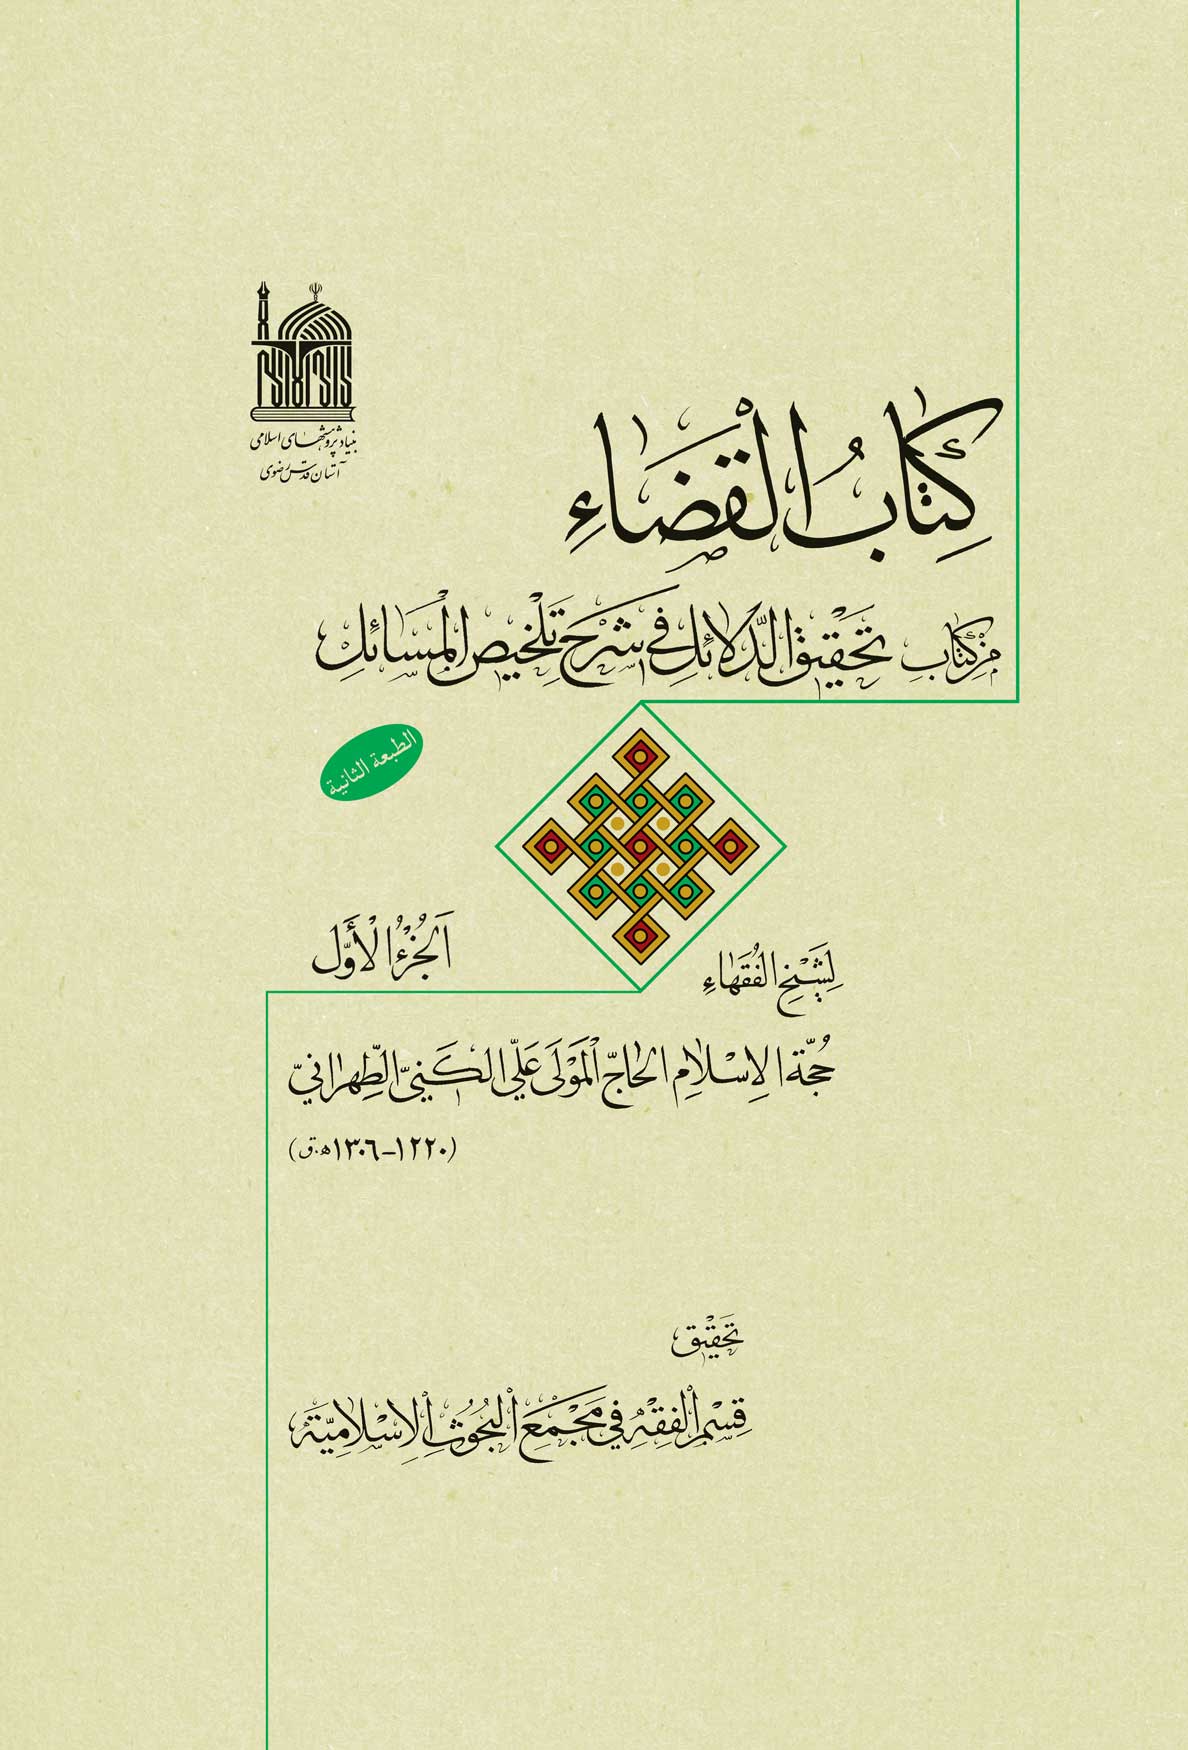 بنیاد پژوهشهای اسلامی
آستان قدس رضوی
كِتَابُ الْقَضَاءِ
مِنْ كِتَابِ تَحْقِيقُ الدَّلَائِلِ فِي شَرْحِ تَلْخِيصِ الْمَسَائِلِ
الطبعة الثانية
اَلْجُزْءُ الْأَوَّل
لِشَيْخِ الْفُقَهَاءِ
حُجَّة الإِسْلَامِ الحَاجّ الْمَوْلَى عَلِيّ الكَنِيّ الطِّهرَانِيّ
(١٢٢٠–١٣٠٦ھ.ق)
تَحْقِيْق
قِسْمِ الْفِقْهِ فِي مَجْمَعِ الْبُحُوثِ الْإِسْلَامِيَّةِ